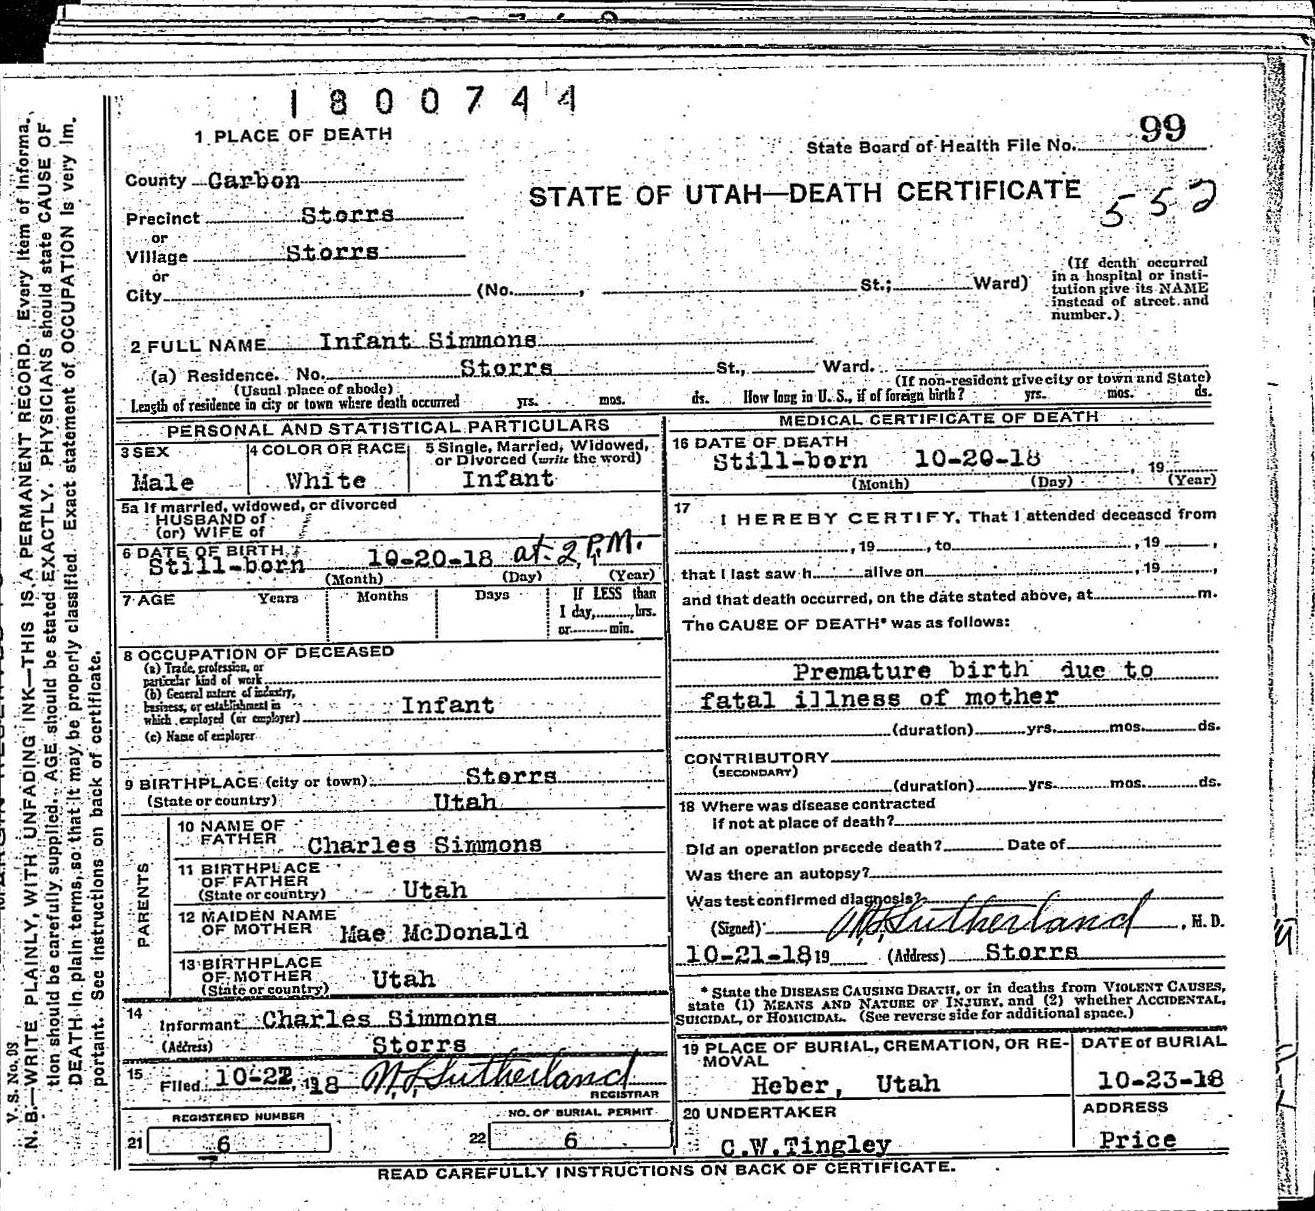 1800744
1 PLACE OF DEATH
State Board of Health File No. 99
County Carbon
STATE OF UTAH—DEATH CERTIFICATE
552
Precinct Storrs
or
Village Storrs
or
City (No. , St.; Ward)
(If death occurred
in a hospital or insti-
tution give its NAME
instead of street and
number.)
2 FULL NAME Infant Simmons
(a) Residence. No. Storrs St., Ward.
(Usual place of abode) (If non-resident give city or town and State)
Length of residence in city or town where death occurred yrs. mos. ds. How long in U. S., if of foreign birth? yrs. mos. ds.
PERSONAL AND STATISTICAL PARTICULARS
3 SEX
Male
4 COLOR OR RACE
White
5 Single, Married, Widowed,
or Divorced (write the word)
Infant
5a If married, widowed, or divorced
HUSBAND of
(or) WIFE of
6 DATE OF BIRTH
Still-born 10-20-18 at 2 P.M.
(Month) (Day) (Year)
7 AGE Years Months Days If LESS than
1 day, hrs.
or min.
8 OCCUPATION OF DECEASED
(a) Trade, profession, or
particular kind of work
(b) General nature of industry,
business, or establishment in
which employed (or employer) Infant
(c) Name of employer
9 BIRTHPLACE (city or town) Storrs
(State or country) Utah
PARENTS
10 NAME OF
FATHER Charles Simmons
11 BIRTHPLACE
OF FATHER
(State or country) Utah
12 MAIDEN NAME
OF MOTHER Mae McDonald
13 BIRTHPLACE
OF MOTHER
(State or country) Utah
14
Informant Charles Simmons
(Address) Storrs
15
Filed 10-22, 1918 Sutherland
REGISTRAR
REGISTERED NUMBER
21 6
NO. OF BURIAL PERMIT
22 6
MEDICAL CERTIFICATE OF DEATH
16 DATE OF DEATH
Still-born 10-20-18 , 19
(Month) (Day) (Year)
17
I HEREBY CERTIFY, That I attended deceased from
, 19 , to , 19 ,
that I last saw h alive on , 19 ,
and that death occurred, on the date stated above, at m.
The CAUSE OF DEATH* was as follows:
Premature birth due to
fatal illness of mother
(duration) yrs. mos. ds.
CONTRIBUTORY
(SECONDARY)
(duration) yrs. mos. ds.
18 Where was disease contracted
if not at place of death?
Did an operation precede death? Date of
Was there an autopsy?
Was test confirmed diagnosis?
(Signed) Sutherland , M. D.
10-21-18 19 (Address) Storrs
* State the DISEASE CAUSING DEATH, or in deaths from VIOLENT CAUSES,
state (1) MEANS AND NATURE OF INJURY, and (2) whether ACCIDENTAL,
SUICIDAL, or HOMICIDAL. (See reverse side for additional space.)
19 PLACE OF BURIAL, CREMATION, OR RE-
MOVAL
Heber, Utah
DATE of BURIAL
10-23-18
20 UNDERTAKER
C.W.Tingley
ADDRESS
Price
READ CAREFULLY INSTRUCTIONS ON BACK OF CERTIFICATE.
V. S. No. 98
N. B.—WRITE PLAINLY, WITH UNFADING INK—THIS IS A PERMANENT RECORD. Every item of informa-
tion should be carefully supplied. AGE should be stated EXACTLY. PHYSICIANS should state CAUSE OF
DEATH in plain terms, so that it may be properly classified. Exact statement of OCCUPATION is very im-
portant. See instructions on back of certificate.